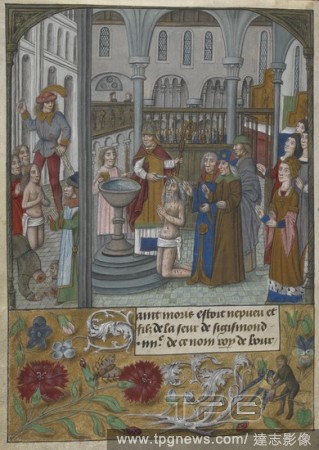 Saint moris estoit nepueu et
filz de la seur de sigismond
de ce nom roy de bour
TPG
www.tpgnews.com / 達志影像